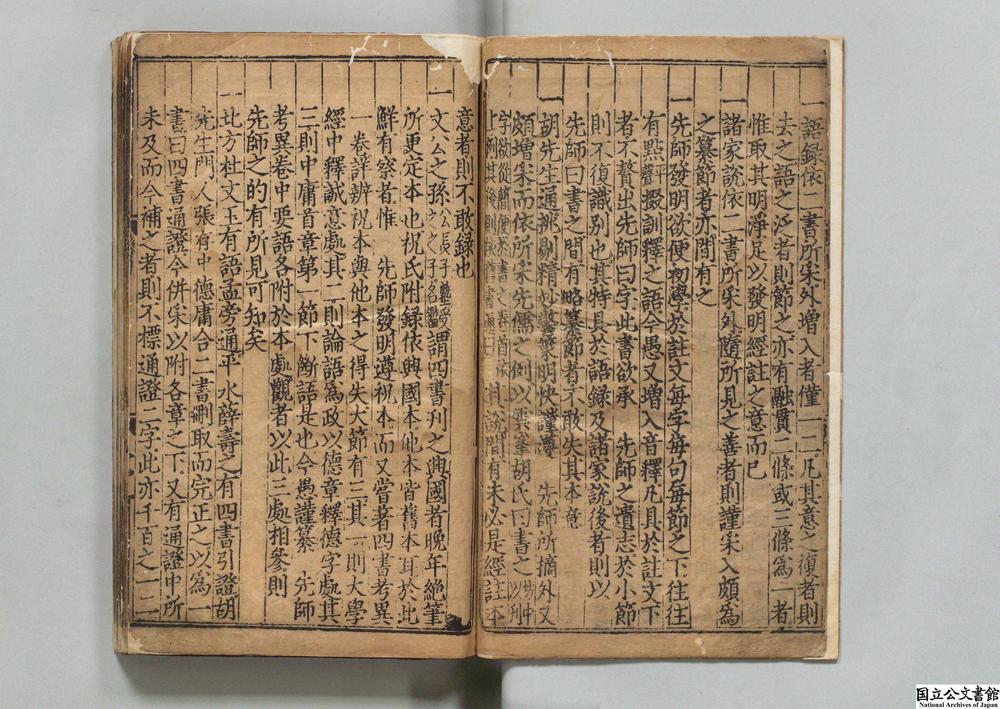 一語録依二書所采外増入者僅一二凡其意之復者則
去之語之泛者則節之亦有融貫二條或三條為一者
惟取其明淨足以發明經註之意而已
一諸家說依二書所采外隨所見之善者則謹采入頗為
之纂節者亦間有之
一先師發明欲便初學於註文每字每句每節之下往往
有㸃掇訓釋之語今愚又增入音釋凡具於註文下
者不贅出先師曰字此書欲承 先師之遺志於小節
則不復識别也其特具於語録及諸家說後者則以
先師曰書之間有略纂節者不敢失其本意
一胡先生通挑剔精明快謹遵 先師所摘外又
頗增采而依所采先儒之例以雲峯胡氏曰書之
意者則不敢録也
一文公之孫公長子塾受之之子名鑑謂四書刊之興國者晚年絶筆
所更定本也祝氏附録依興國本他本皆舊本耳於此
鮮有察者惟 先師發明遵祝本而又嘗著四書考異
一卷詳辨祝本與他本之得失大節有三其一則大學
經中釋誠意處其二則論語為政以德章釋德字處其
三則中庸首章第一節下斷語是也今愚謹纂 先師
考異卷中要語各附於本處觀者以此三處相參則
先師之的有所見可知矣
一北方杜文玉有語孟旁通平水薛壽之有四書引證胡
先生門人張存中德庸合二書刪取而完正之以為一
書曰四書通證今併采以附各章之下又有通證中所
未及而今補之者則不標通證二字此亦千百之一二
国立公文書館
National Archives of Japan